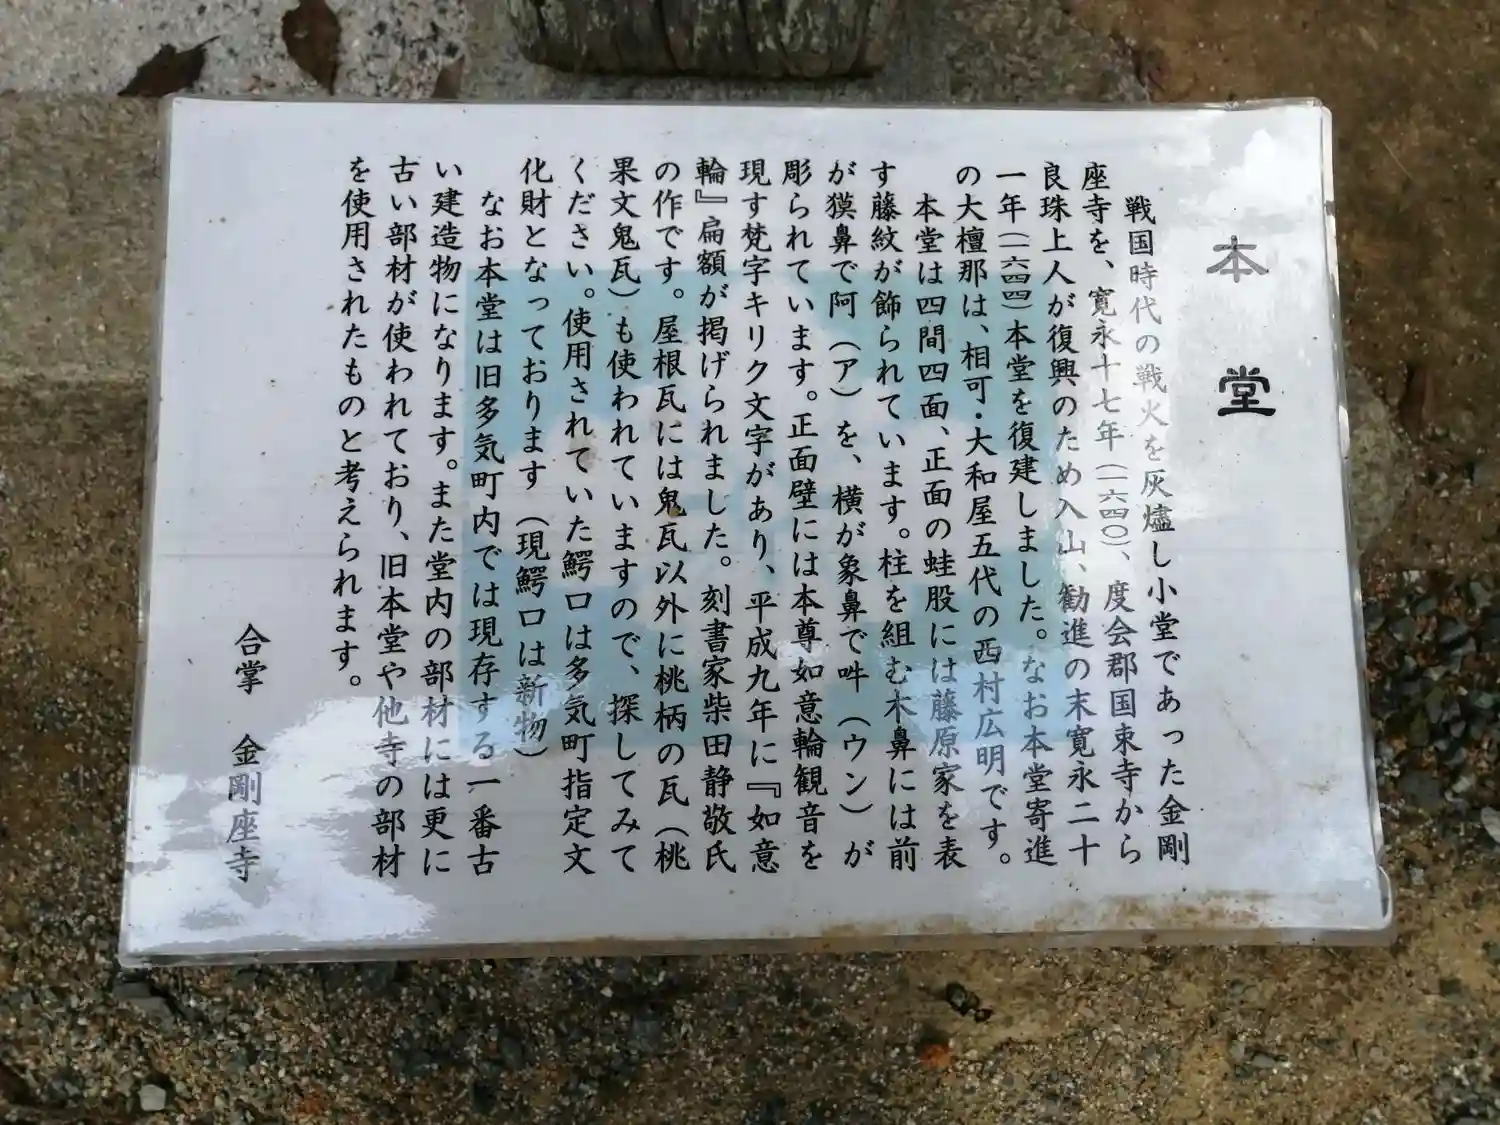 本堂
戦国時代の戦火を灰燼し小堂であった金剛
座寺を、寛永十七年（一六四〇）、度会郡国束寺から
良珠上人が復興のため入山、勧進の末寛永二十
一年（一六四四）本堂を復建しました。なお本堂寄進
の大檀那は、相可・大和屋五代の西村広明です。
本堂は四間四面、正面の蛙股には藤原家を表
す藤紋が飾られています。柱を組む木鼻には前
が獏鼻で阿（ア）を、横が象鼻で吽（ウン）が
彫られています。正面壁には本尊如意輪観音を
現す梵字キリク文字があり、平成九年に『如意
輪』扁額が掲げられました。刻書家柴田静敬氏
の作です。屋根瓦には鬼瓦以外に桃柄の瓦（桃
果文鬼瓦）も使われていますので、探してみて
ください。使用されていた鰐口は多気町指定文
化財となっております（現鰐口は新物）
なお本堂は旧多気町内では現存する一番古
い建造物になります。また堂内の部材には更に
古い部材が使われており、旧本堂や他寺の部材
を使用されたものと考えられます。
合掌 金剛座寺